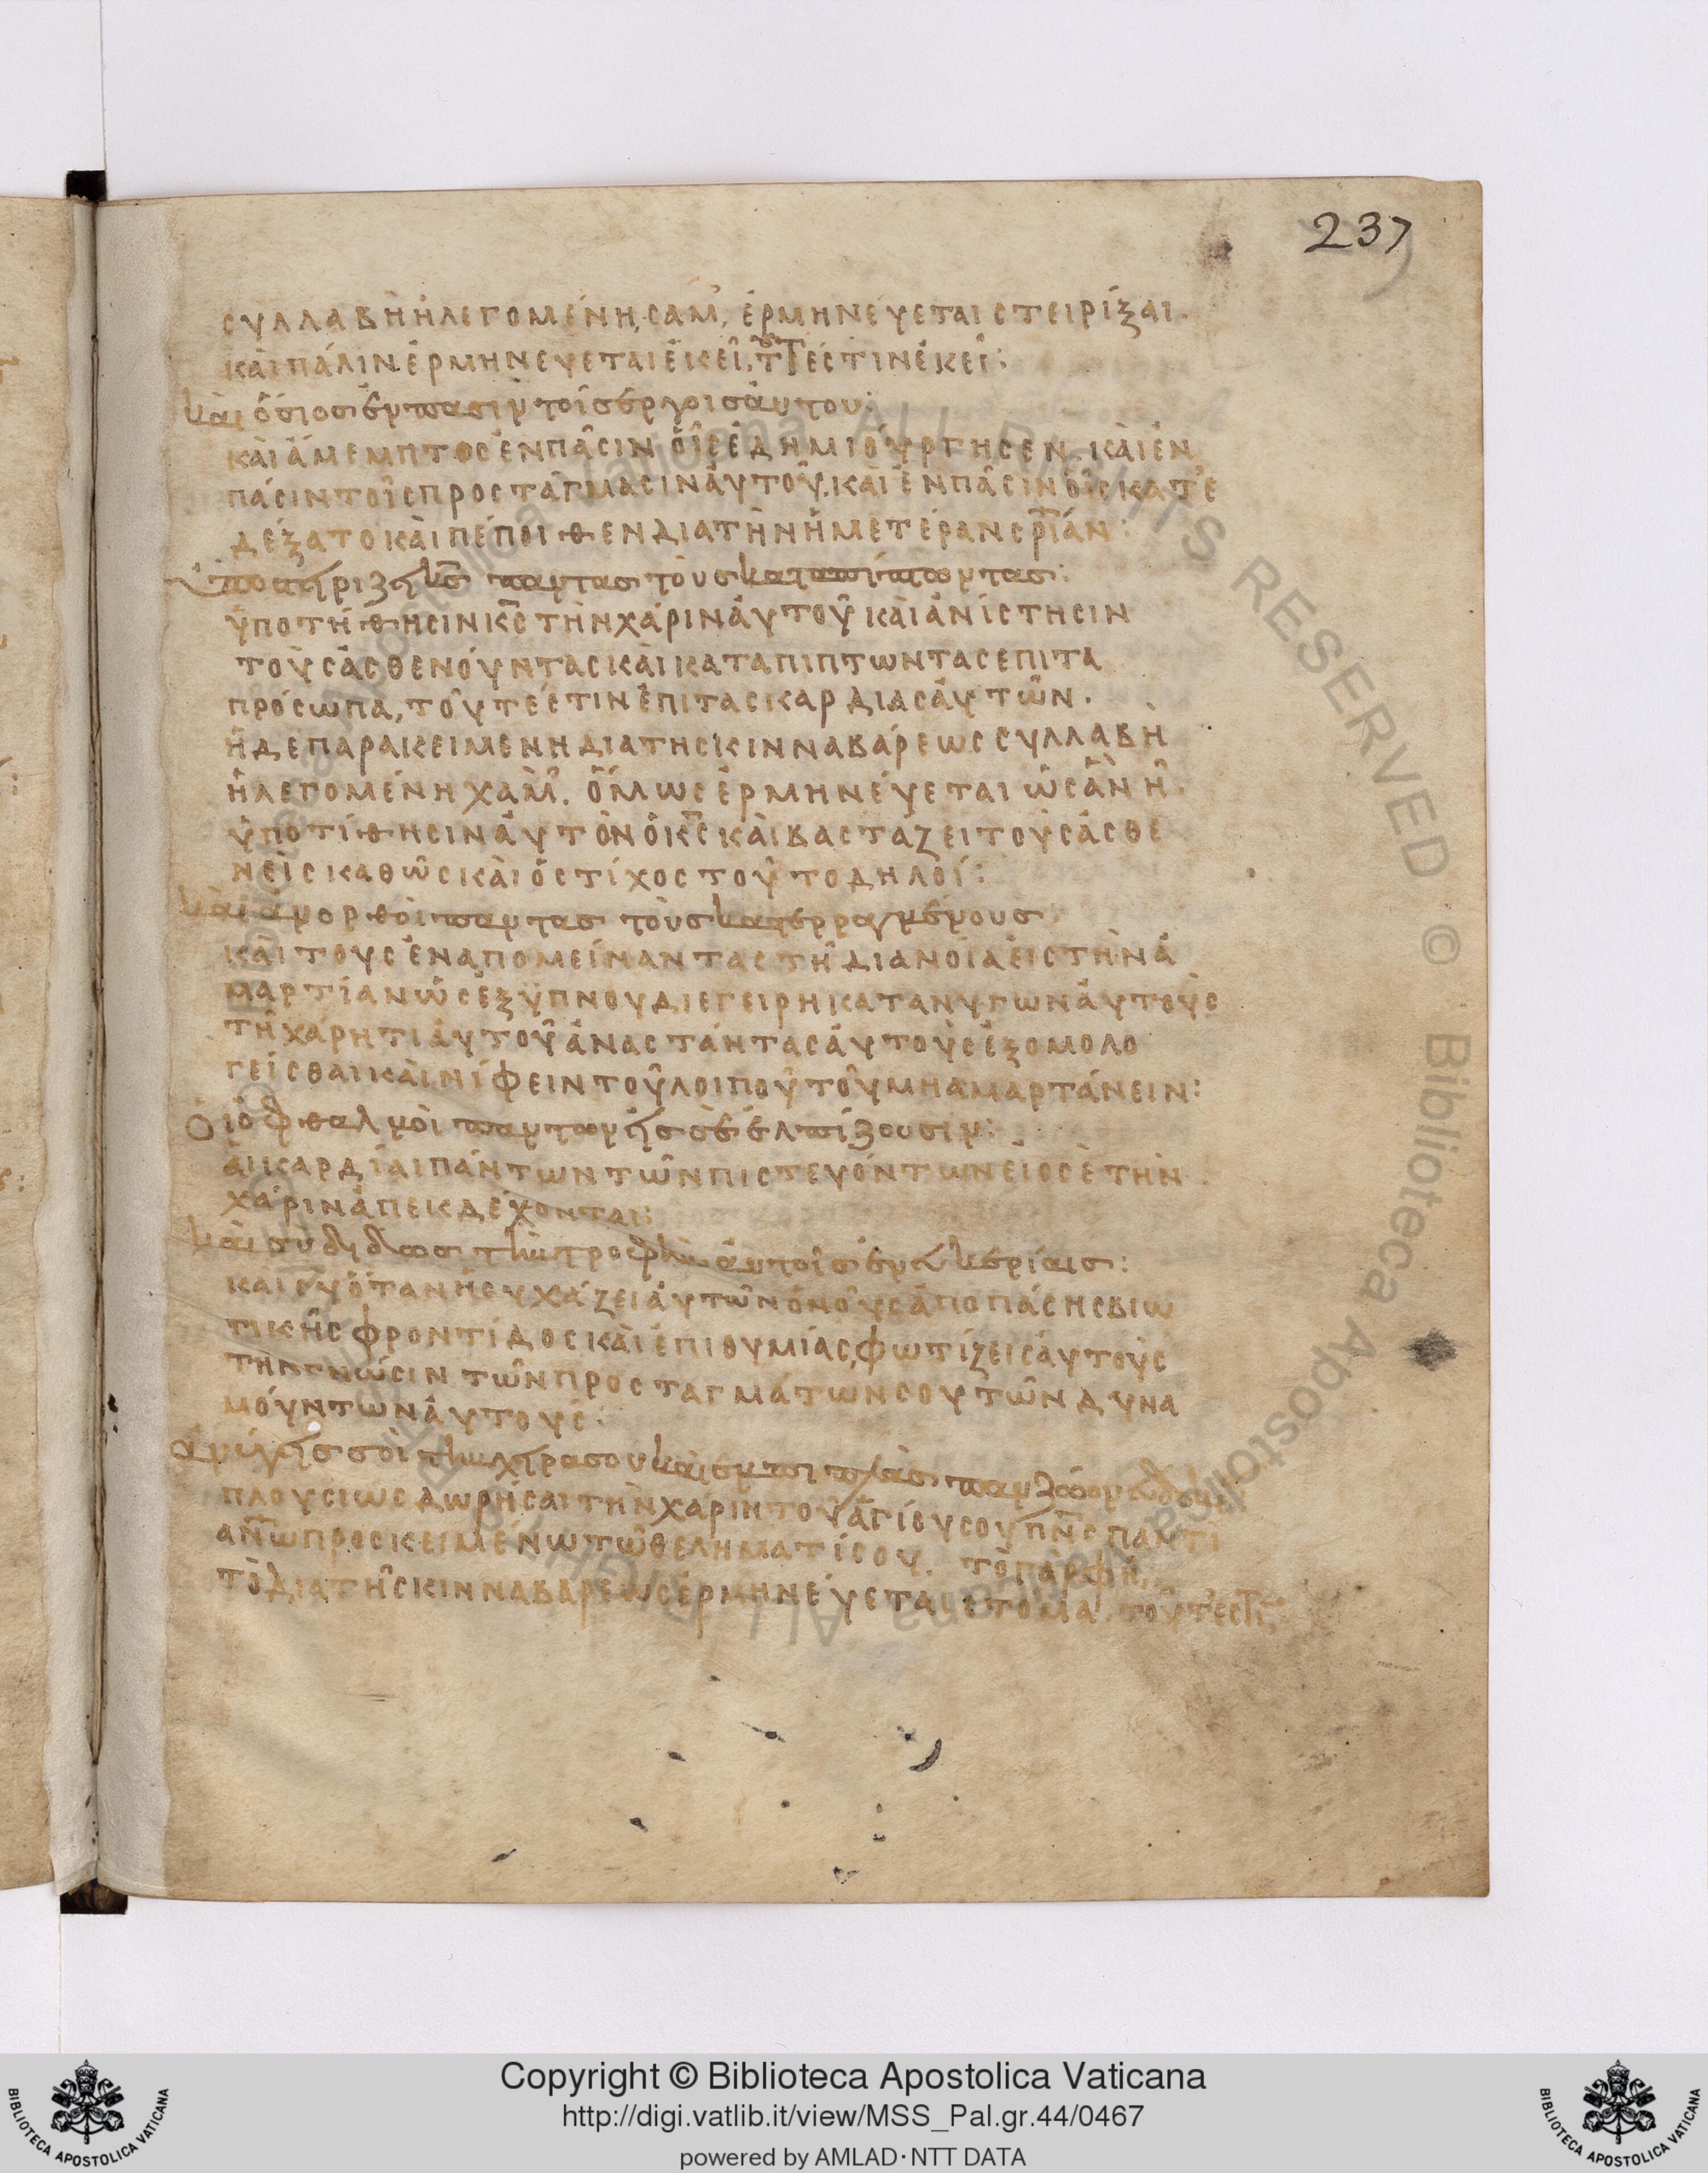 237
συλλαβὴ ἡ λεγομένη, σάμ, ἑρμηνεύεται στειρίξαι.
καὶ πάλιν ἑρμηνεύεται ἐκεῖ, τουτέστιν ἐκεῖ:
καὶ ὅσιος ἐν πασιν τοῖς ἔργοις αὐτου:
καὶ ἄμεμπτος ἐν πᾶσιν οἷς ἐδημιούργησεν. καὶ ἐν
πάσιν τοῖς προστάγμασιν αὐτοῦ. καὶ ἐν πᾶσιν οἷς κατε
δέξατο καὶ πέποιθεν διὰ τὴν ἡμετέραν σ̅ρ̅ιαν:
ὑποστηρίζη κ̅ς̅ παντας τοὺς καταπίπτοντας:
ὑποτήθησιν κ̅ς̅ τὴν χάριν αὐτοῦ καὶ ἀνίστησιν
τοὺς ἀσθενούντας καὶ καταπιπτωντας επι τα
πρόσωπα, τοῦτέστιν ἐπι τας καρδιας αὐτῶν.
ἡ δε παρακειμενη δια της κινναβάρεως συλλαβὴ
ἡ λεγομένη χάμ. ὅμως ἑρμηνεύεται ὡς ἂν ἦ
ὑποτίθησιν αὐτὸν ὁ κ̅ς̅ καὶ βασταζει τοὺς ἀσθε
νεὶς καθῶς καὶ ὁ στίχος τοῦτο δηλοί:
καὶ ανορθοὶ παντας τοὺς κατερραγμένους
καὶ τους ἐναπομείναντας τῆ διανοία εἰς τὴν ἁ
μαρτίαν ὡς ἐξ ὕπνου διεγειρη κατανυγων αὐτοὺς
τῆ χάρητι αὐτοῦ ἀναστάντας αὐτοὺς ἐξομολο
γείσθαι καὶ νίφειν τοῦ λοιποῦ τοῦ μη αμαρτάνειν:
Ὁι ὀφθαλμοὶ παντων εἰς σὲ ἐλπίζουσιν:
αἱ καρδίαι πάντων τῶν πιστευόντων εἰς σὲ τὴν
χάριν ἀπεκδέχονται:
καὶ σὺ δίδως τὴν τροφὴν αὐτοῖς ἐν εὐκερίαις:
καὶ σὺ ὅταν ἡσυχάζει αὐτῶν ὁ νοῦς ἀπο πάσης βιω
τικῆς φροντίδος καὶ ἐπιθυμίας, φωτίζεις αὐτοὺς
τὴν γνώσιν τῶν προσταγμάτων σου τῶν δυνα
μούντων αὐτους:
ἀνύγεις σοὶ τὴν χήρα σου καὶ ἐμπιπλὰς παν ζῶον εὐδοκίας
πλουσιως δωρήσαι τὴν χαριν τοῦ ἁγίου σου π̅ν̅ς̅ παντὶ
α̅ν̅ω̅ προσκειμένω τῶ θεληματί σου. τὸ
τὸ δια τῆς κινναβαρεως ἑρμηνεύεται στόμα. τουτέστιν
Copyright © Biblioteca Apostolica Vaticana
http://digi.vatlib.it/view/MSS_Pal.gr.44/0467
powered by AMLAD·NTT DATA
BIBLIOTECA APOSTOLICA VATICANA
BIBLIOTECA APOSTOLICA VATICANA